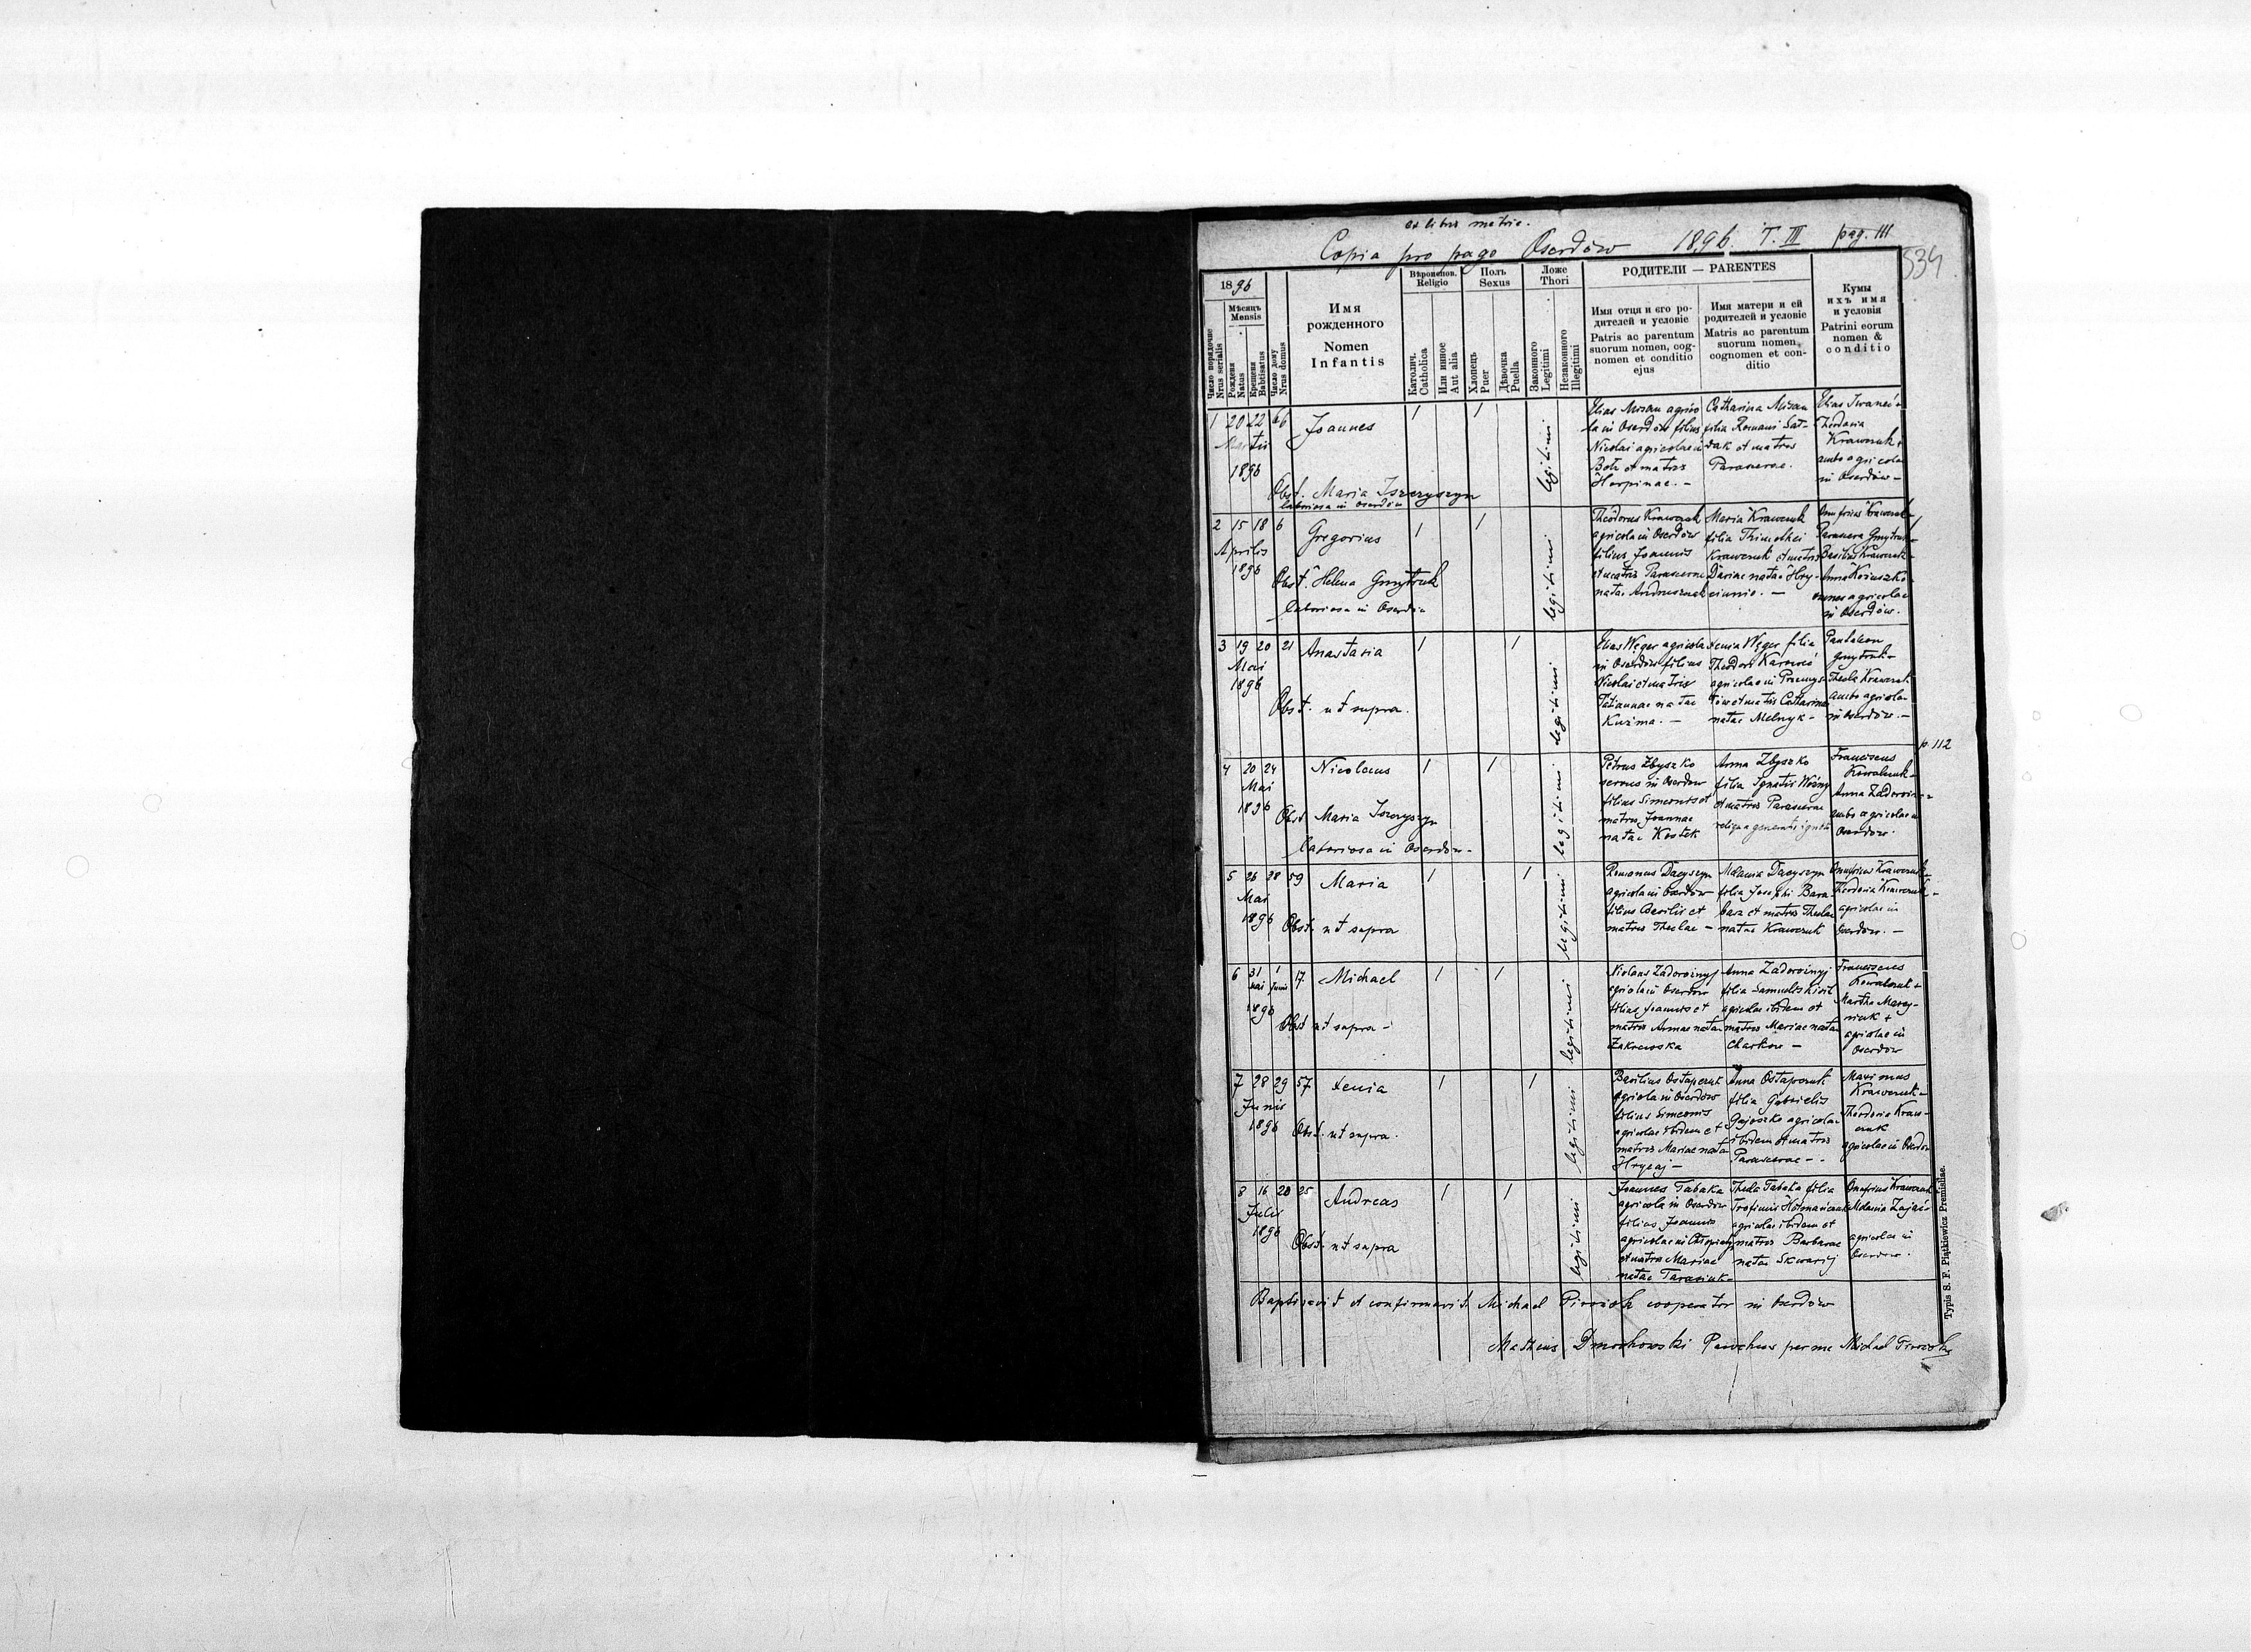 ex libris metric.
Copia pro pago Oserdów 1896. T. III pag. 111
534
1896
Мѣсяць
Mensis
Число порядочне
Nrus serialis
Рождена
Natus
Крещена
Babtisatus
Число дому
Nrus domus
Имя
рожденного
Nomen
Infantis
Вѣроиспов.
Religio
Католич.
Catholica
Или инное
Aut alia
Полъ
Sexus
Хлопець
Puer
Дѣвочка
Puella
Ложе
Thori
Законного
Legitimi
Незаконного
Illegitimi
РОДИТЕЛИ — PARENTES
Имя отця и єго ро-
дителей и условіє
Patris ac parentum
suorum nomen, cog-
nomen et conditio
ejus
Имя матери и ей
родителей и условіє
Matris ac parentum
suorum nomen,
cognomen et con-
ditio
Кумы
ихъ имя
и условія
Patrini eorum
nomen &
conditio
1 20 22 66 Joannes
Martii
1896
Obst. Maria Iszczyszyn
laboriosa in Oserdów
legitimi
Elias Mozan agrico
la in Oserdów filius
Nicolai agricolae in
et matris
Horpinae. -
Catharina Mozan
filia Romani Sal-
dak et matris
Parascevae.
Elias Iwaneć
Theodosia
Krawczuk
ambo agricolae
in Oserdów -
2 15 18 6 Gregorius
Aprilis
1896
Obst. Helena Gmytruk
laboriosa in Oserdów
legitimi
Theodorus Krawczuk
agricola in Oserdów
filius Joannis
et matris Parascevae
natae Andruszczak
Maria Krawczuk
filia Thimothei
Krawczuk et matris
Dariae natae Hry-
ciunio. -
Onufrius Krawczuk
Parasceva Gmytruk
Basilius Krawczuk
Anna Kożuszko
omnes agricolae
in Oserdów.
3 19 20 21 Anastasia
Mai
1896
Obst. ut supra.
legitimi
Elias Węger agricola
in Oserdów filius
Nicolai et matris
Tatiannae natae
Kuźma. -
Xenia Węger filia
Theodori
agricolae in Przemys-
łów et matris Catharinae
natae Melnyk -
Pantaleon
Gmytruk -
Thecla Krawczuk
ambo agricolae
in Oserdów. -
p. 112
4 20 24 Nicolaus
Mai
1896
Obst. Maria Iszczyszyn
laboriosa in Oserdów -
legitimi
Petrus Zbyszko
servus in Oserdów
filius Simeonis et
matris Joannae
natae Kostek
Anna Zbyszko
filia Ignatii Woźny
et matris Parascevae
Franciscus
Kowalczuk -
Anna Zadorożna
ambo agricolae in
Oserdów.
5 26 28 59 Maria
Mai
1896
Obst. ut supra
legitimi
Romanus Dacyszyn
agricola in Oserdów
filius Basilii et
matris Theclae -
Melania Dacyszyn
filia Josephi Bara
basz et matris Theclae
natae Krawczuk
Onufrius Krawczuk
Theodosia Krawczuk -
agricolae in
Oserdów. -
6 31 1 17. Michael
Mai Junii
1896
Obst ut supra -
legitimi
Nicolaus Zadorożnyj
agricola in Oserdów
filius Joannis et
matris Annae natae
Zakrewska
Anna Zadorożnyj
filia Samuelis
agricolae ibidem et
matris Mariae natae
Charkow -
Franciscus
Kowalczuk +
Martha Marcy-
niuk +
agricolae in
Oserdów
7 28 29 57 Xenia
Junii
1896
Obst. ut supra.
legitimi
Basilius Ostapczuk
agricola in Oserdów
filius Simeonis
agricolae ibidem et
matris Mariae natae
Hrycaj -
Anna Ostapczuk
filia Gabrielis
Gajoszko agricolae
ibidem et matris
Parascevae -.
Maximus
Krawczuk -
Theodosia Kraw-
czuk
agricolae in Oserdów
8 16 20 25 Andreas
Julii
1896
Obst. ut supra
legitimi
Joannes Tabaka
agricola in Oserdów
filius Joannis
agricolae in
et matris Mariae
natae Tarasiuk -
Thecla Tabaka filia
Trofimii
agricolae ibidem et
matris Barbarae
natae Skwaryj
Onufrius Krawczuk
Melania Zając -
agricolae in
Oserdów.
Baptisavit et confirmavit Michael Pirożok cooperator in Oserdów
Matheus Dmochowski Parochus per me Michael Pirożok
Typis S. F. Piątkiewicz Premisliae.